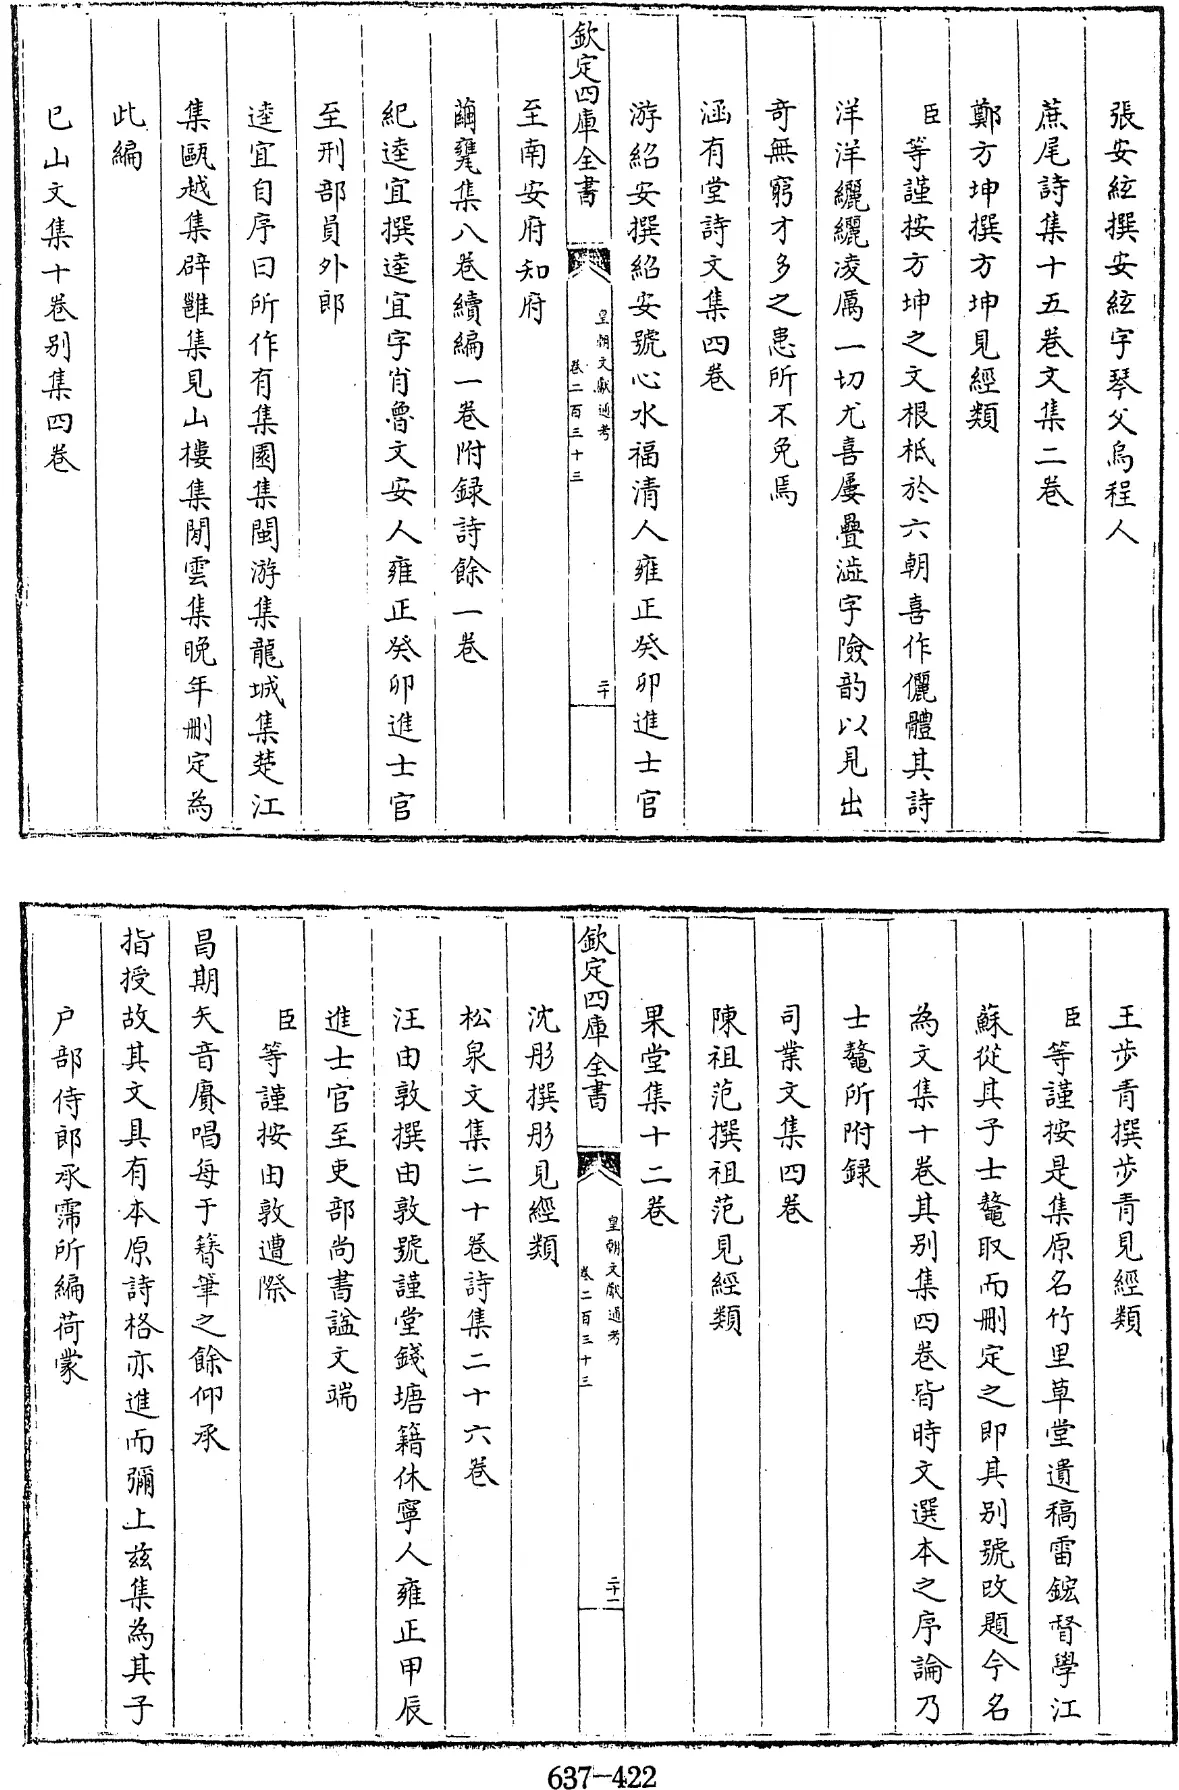 張安絃撰安絃字琴父烏程人
蔗尾詩集十五卷文集二卷
鄭方坤撰方坤見經類
臣等謹按方坤之文根柢於六朝喜作儷體其詩
洋洋纚纚凌厲一切尤喜屢疊澁字險韵以見出
奇無窮才多之患所不免焉
涵有堂詩文集四卷
游紹安撰紹安號心水福清人雍正癸卯進士官
欽定四庫全書
皇朝文獻通考
卷二百三十三
二十
至南安府知府
繭甕集八卷續編一卷附録詩餘一卷
紀逵宜撰逵宜字肖魯文安人雍正癸卯進士官
至刑部員外郎
逵宜自序曰所作有集園集閩游集龍城集楚江
集甌越集辟雝集見山樓集閒雲集晩年刪定為
此編
已山文集十卷别集四卷
王步青撰步青見經類
臣等謹按是集原名竹里草堂遺稿雷鋐督學江
蘇從其子士鼇取而刪定之即其别號改題今名
為文集十卷其别集四卷皆時文選本之序論乃
士鼇所附録
司業文集四卷
陳祖范撰祖范見經類
果堂集十二卷
欽定四庫全書
皇朝文獻通考
卷二百三十三
二十一
沈彤撰彤見經類
松泉文集二十卷詩集二十六卷
汪由敦撰由敦號謹堂錢塘籍休寧人雍正甲辰
進士官至吏部尚書諡文端
臣等謹按由敦遭際
昌期矢音賡唱每于簪筆之餘仰承
指授故其文具有本原詩格亦進而彌上兹集為其子
户部侍郎承霈所編荷蒙
637-422